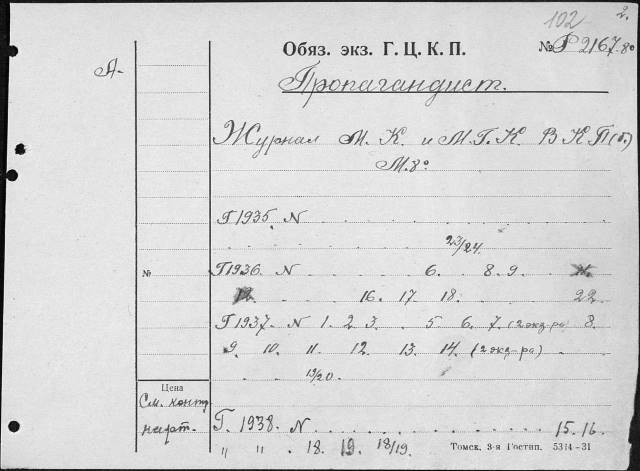 102 2.
Обяз. экз. Г. Ц. К. П. № Р 2167. 8°
А.
Пропагандист.
Журнал М. К. и М.Г.К. ВКП(б.)
М. 8°
Г 1935. N . . . . . . . .
. . . . . . 23/24.
№ Г 1936. N . . . . 6. . 8. 9. . 11.
12. . . . 16. 17. 18. . . . 22.
Г 1937. N 1. 2. 3. . 5. 6. 7. (2 экз-ра) 8.
9. 10. 11. 12. 13. 14. (2 экз-ра) . .
. . 19/20. . . . . . .
Цена
См. контр
карт.
Г. 1938. N . . . . . . . 15. 16.
" " . 18. 19. 18/19.
Томск. 3-я Гостип. 5314-31